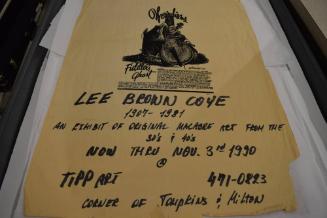 Fiddler's
Ghost
LEE BROWN COYE
1907-1981
AN EXHIBIT OF ORIGINAL MACABRE ART FROM THE
30's & 40's
NOW THRU NOV. 3rd 1990
@
TIPP ART 471-0823
CORNER OF TOMPKINS & MILTON